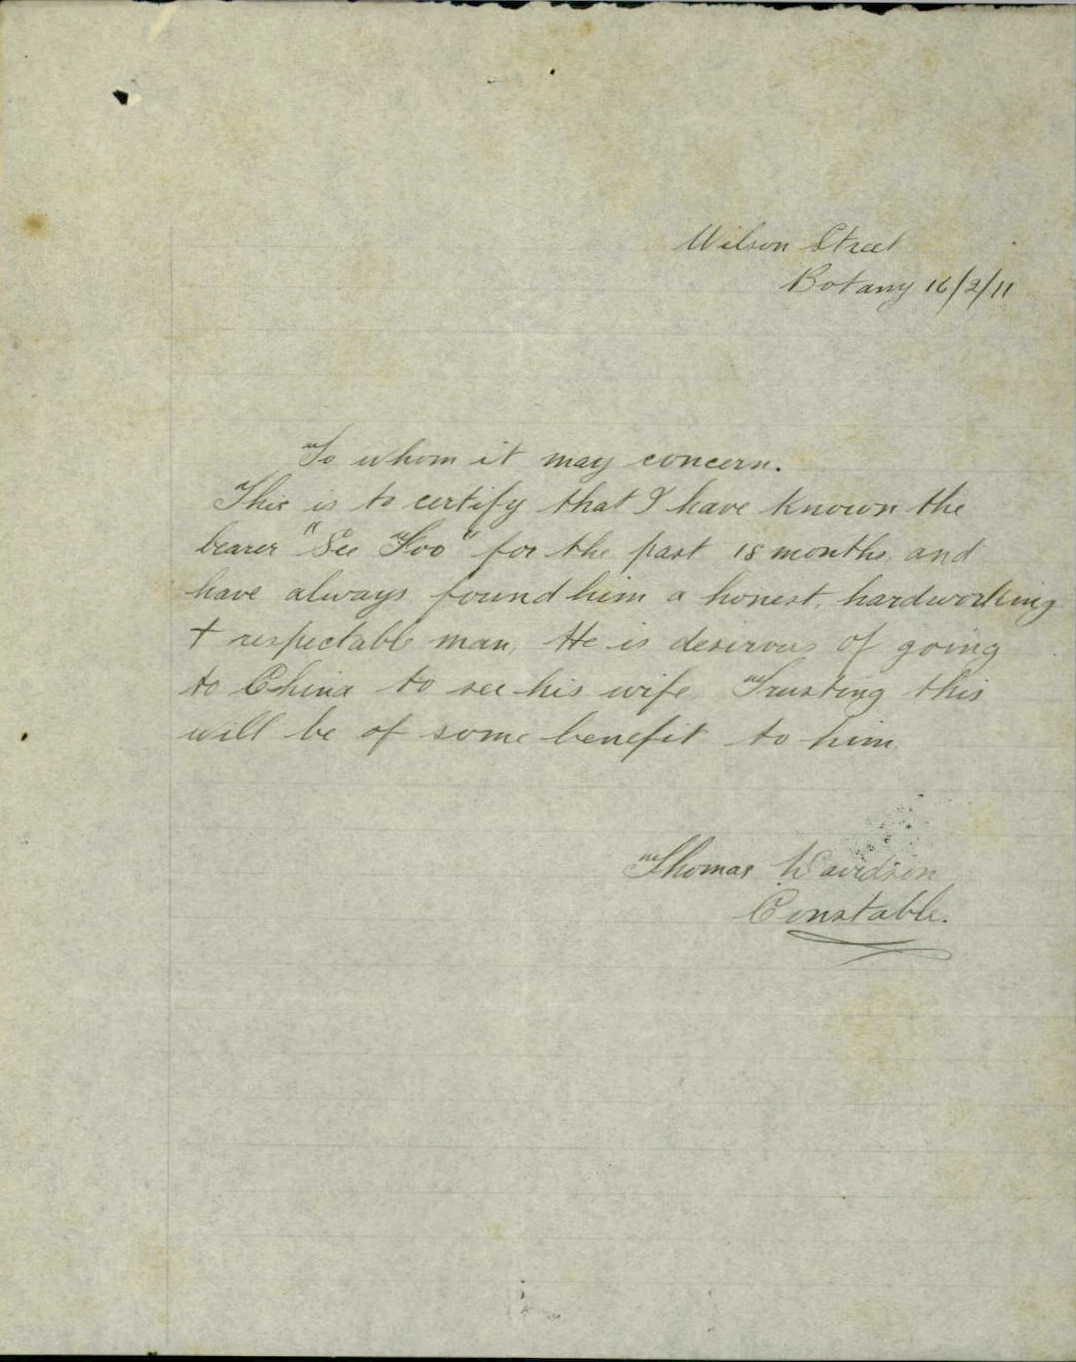 Wilson Street
Botany 16/2/11
To whom it may concern.
This is to certify that I have known the
bearer "See Foo" for the past 18 months, and
have always found him a honest, hardworking
+ respectable man, He is desirous of going
to China to see his wife. Trusting this
will be of some benefit to him
Thomas Davidson
Constable.